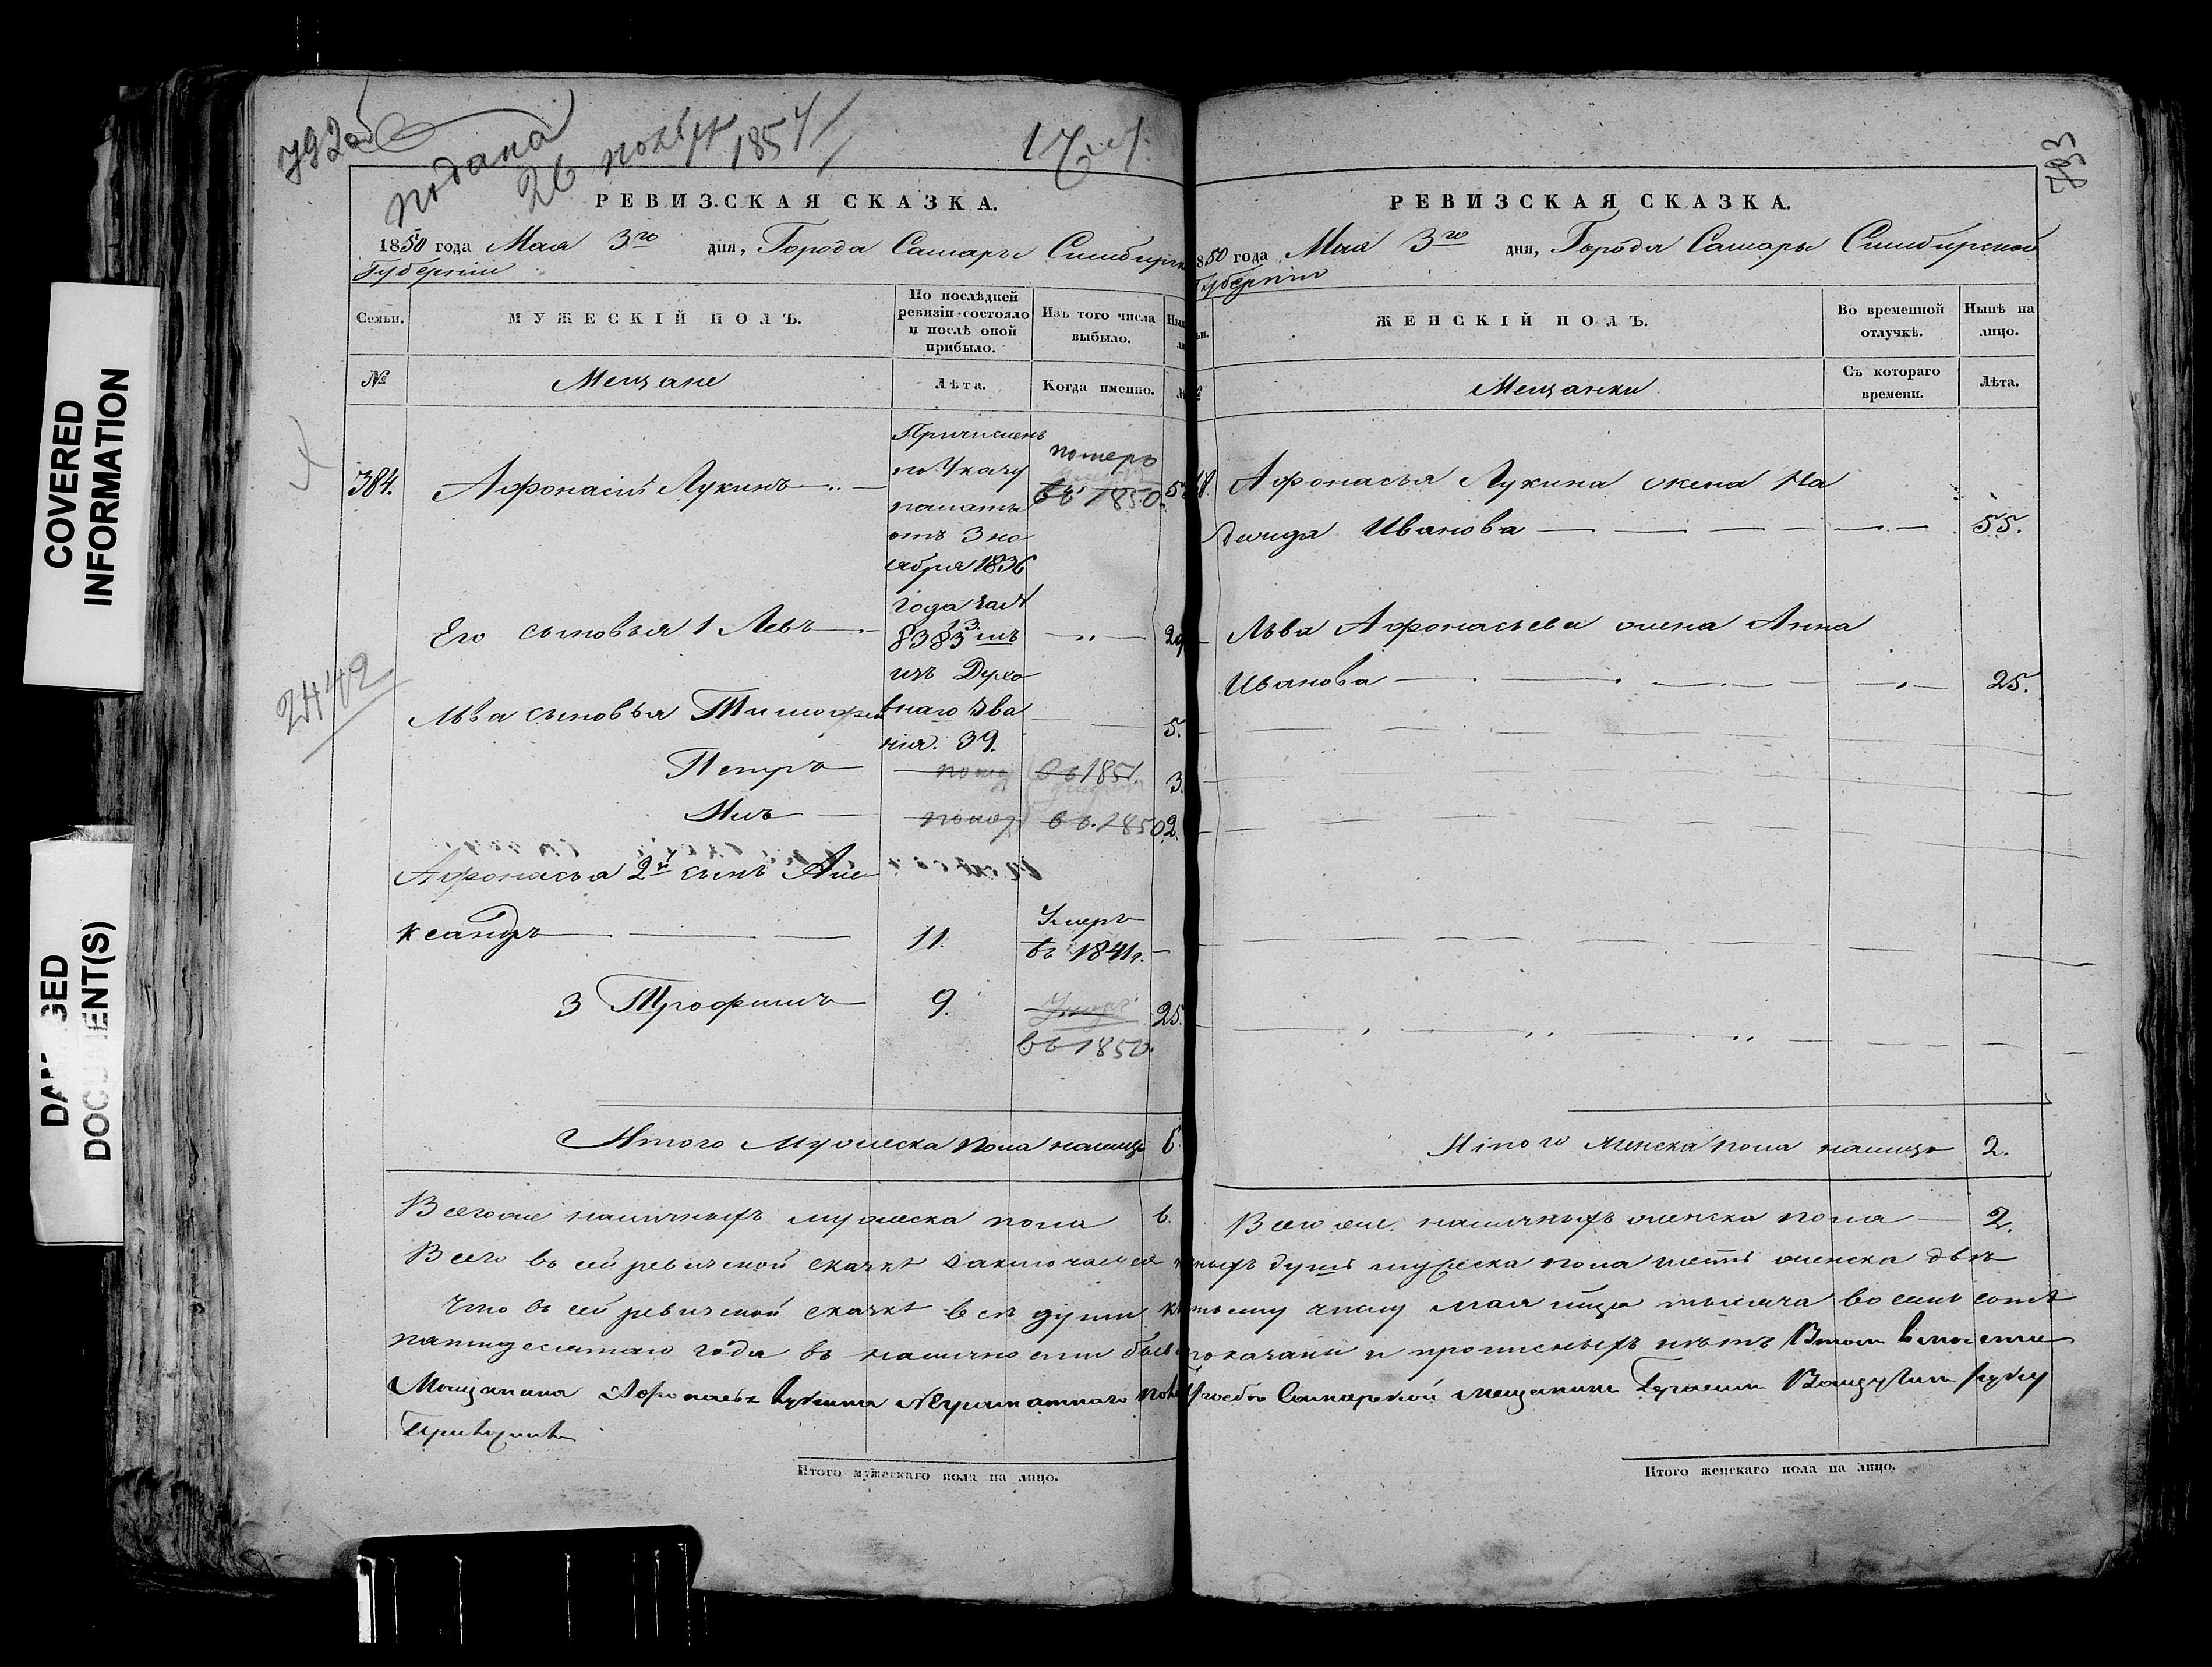 COVERED
INFORMATION
DOCUMENT(S)
792об
подана
26 ноября
1857
РЕВИЗСКАЯ СКАЗКА.
1850 года Мая 3го дня, Города Самары Симбирск
Губернiи
Семьи.
МУЖЕСКIЙ ПОЛЪ.
По послѣдней
ревизiи состояло
и послѣ оной
прибыло.
Изъ того числа
выбыло.
№
Мещане
Лѣта.
Когда именно.
384.
Афонасiй Лукинъ
Причисленъ
по Указу
палаты
отъ 3 но
ября 1836
года за №
8383
изъ Духо
внаго зва
нiя. 39.
померъ
въ 1850.
Его сыновья 1 Левъ
29
2442
Льва сыновья Тимофей
5.
Петръ
въ 1851.
3.
Нилъ
въ 1850
2.
Афонасья 2й сынъ Але
ксандръ
11.
Умеръ
въ 1841г.
3 Трофимъ
9.
въ 1850.
25.
Итого мужеска пола налицо
6.
Всего же наличныхъ мужеска пола
6.
РЕВИЗСКАЯ СКАЗКА.
793
850 года Мая 3го дня, Города Самары Симбирской
Губернiи
ЖЕНСКIЙ ПОЛЪ.
Во временной
отлучкѣ.
Нынѣ на
лицо.
Мещанки
Съ котораго
времени.
Лѣта.
Афонасья Лукина жена На
дежда Иванова
55.
Льва Афонасьева жена Анна
Иванова
25.
Итого женска пола налицо
2.
Всего же наличныхъ женска пола
2.
Всего въ сей ревизской сказкѣ заключается душъ мужеска пола шесть женска двѣ
Что въ сей ревизской сказкѣ всѣ души къ числу мая тысяча восемь сотъ
пятидесятаго года въ наличности показаны и прописныхъ нѣтъ Въ томъ
Мещанина Афонасья Лукина Неграмотнаго Самарской мещанинъ руку
Приложилъ
Итого мужескаго пола на лицо.
Итого женскаго пола на лицо.